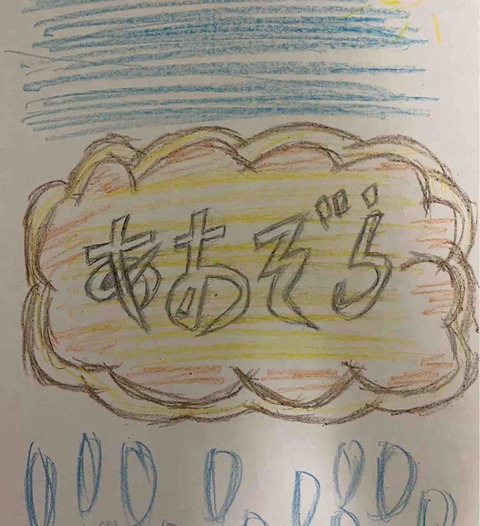 あおぞら